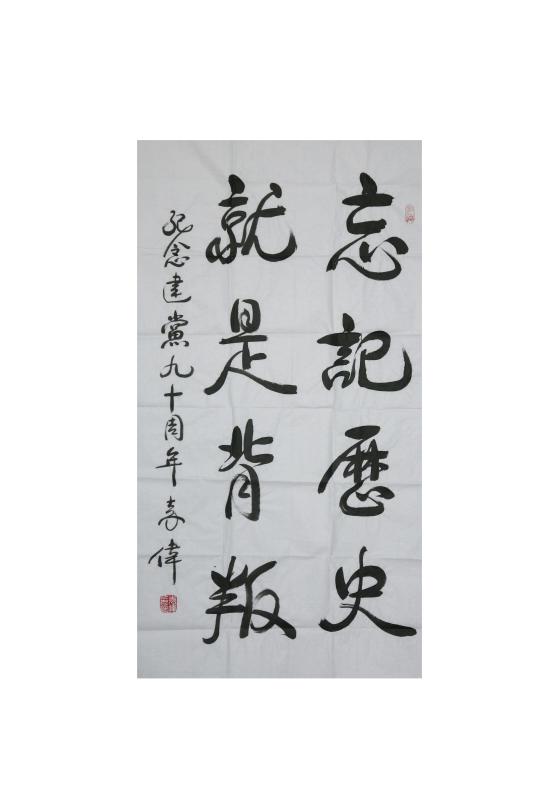 忘記歷史
就是背叛
紀念建黨九十周年 偉